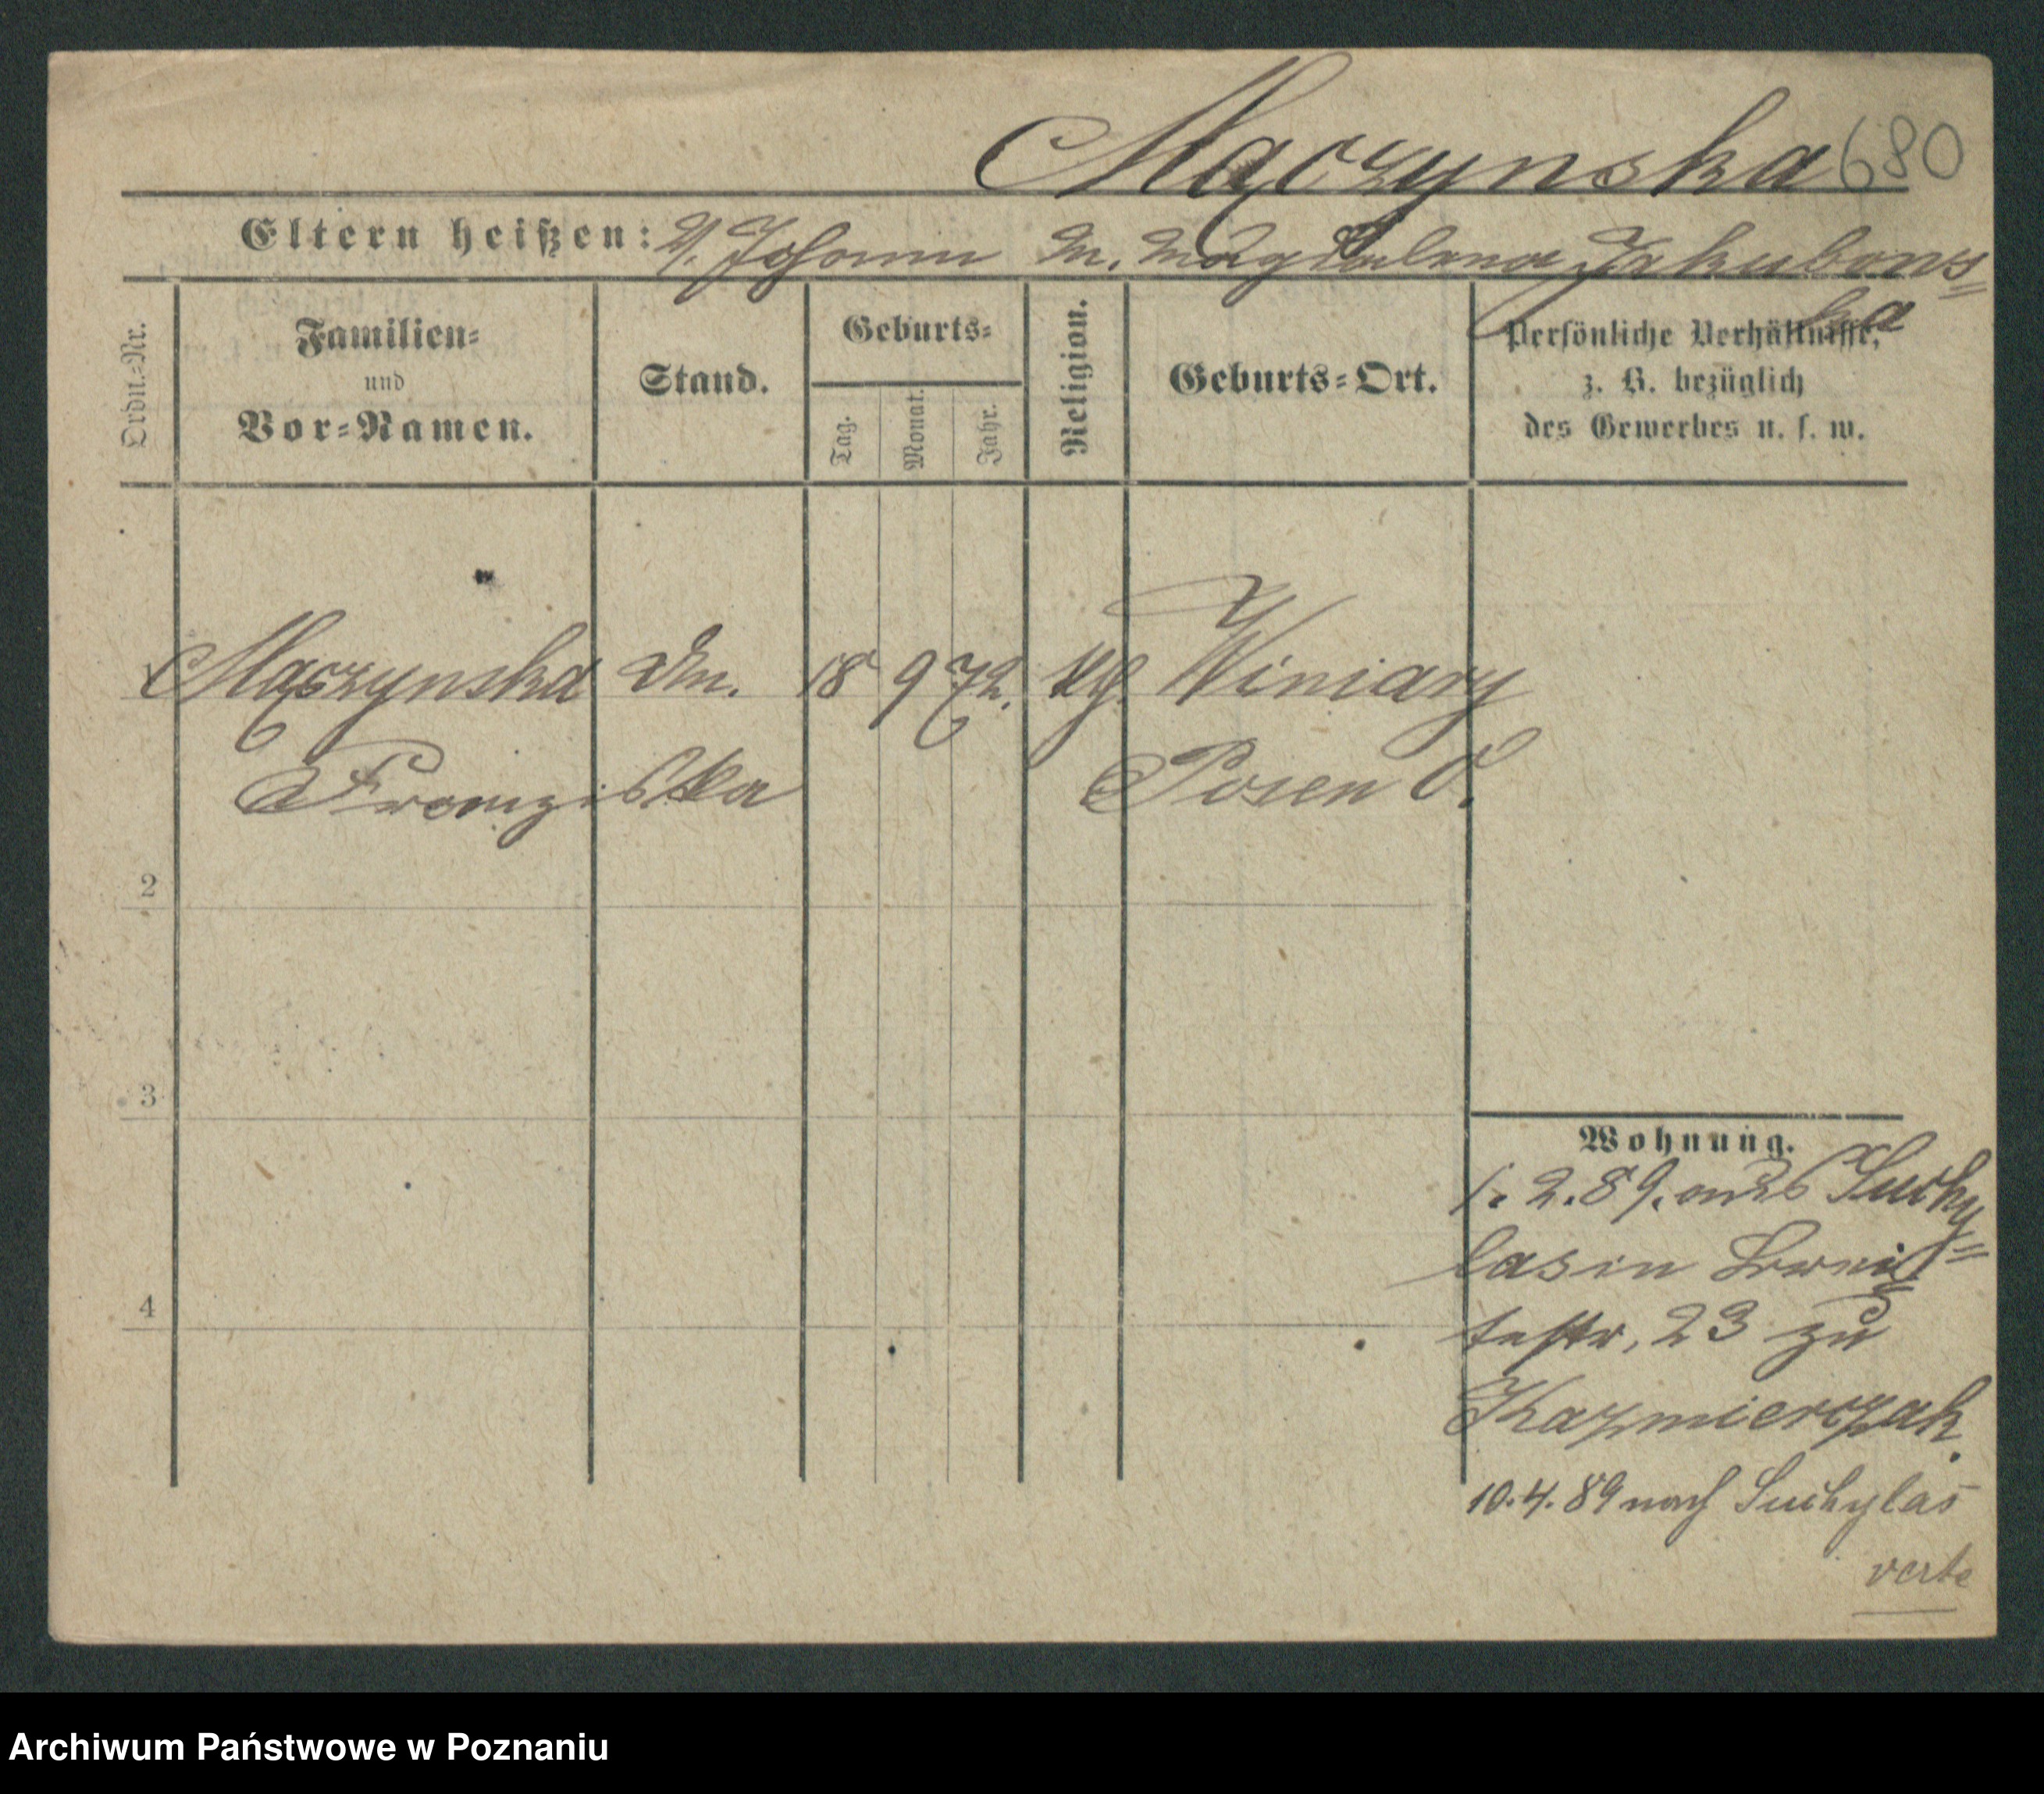 Mączynska 680
Eltern heißen: V. Johann M. Magdalena Jakubows=
ka
Ordn.-Nr.
Familien=
und
Vor=Namen.
Stand.
Geburts=
Tag.
Monat.
Jahr.
Religion.
Geburts=Ort.
Persönliche Verhältnisse,
z. B. bezüglich
des Gewerbes u. s. w.
1 Mączynska Dm. 18 9 72. kth. Winiary
Franziska Posen O.
2
3
4
Wohnung.
1.2.89. aus Suchy=
las in
testr, 23 zu
Kazmierczak.
10.4.89 nach Suchylas
verte
Archiwum Państwowe w Poznaniu